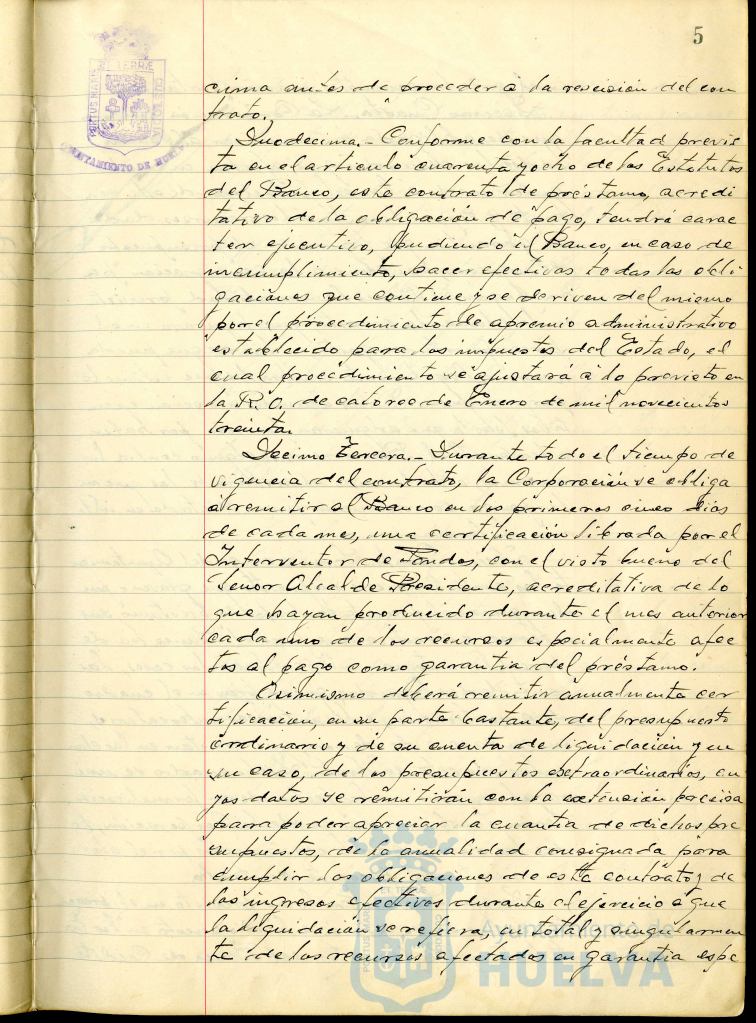 5
PORTUS MARIS ET TERRÆ CUSTODIA
AYUNTAMIENTO DE HUELVA
cima antes de proceder á la rescisión del con
trato.
Duodecima.- Conforme con la facultad previs
ta en el artículo cuarenta y ocho de los Estatutos
del Banco, este contrato de préstamo, acredi
tativo de la obligación de pago, tendrá carac
ter ejecutivo, pudiendo el Banco, en caso de
incumplimiento, hacer efectivas todas las obli
gaciones que contiene y se deriven del mismo
por el procedimiento de apremio administrativo
establecido para los impuestos del Estado, el
cual procedimiento se ajustará á lo previsto en
la R.O. de catorce de Enero de mil novecientos
treinta.
Decimo Tercera.- Durante todo el tiempo de
vigencia del contrato, la Corporación se obliga
á remitir al Banco en los primeros cinco dias
de cada mes, una certificación librada por el
Interventor de Fondos, con el visto bueno del
Señor Alcalde Presidente, acreditativa de lo
que hayan producido durante el mes anterior
cada uno de los recursos especialmente afec
tos al pago como garantia del préstamo.
Asimismo deberá remitir anualmente cer
tificación, en su parte bastante, del presupuesto
ordinario y de su cuenta de liquidación y en
su caso, de los presupuestos extraordinarios, cu
yos datos se remitirán con la extensión precisa
para poder apreciar la cuantia de dichos pre
supuestos, de la anualidad consignada para
cumplir las obligaciones de este contrato y de
los ingresos efectivos durante el ejercicio a que
la liquidación se refiera, en total y singularmen
te de los recursos afectados en garantia espe
Ayuntamiento de
HUELVA